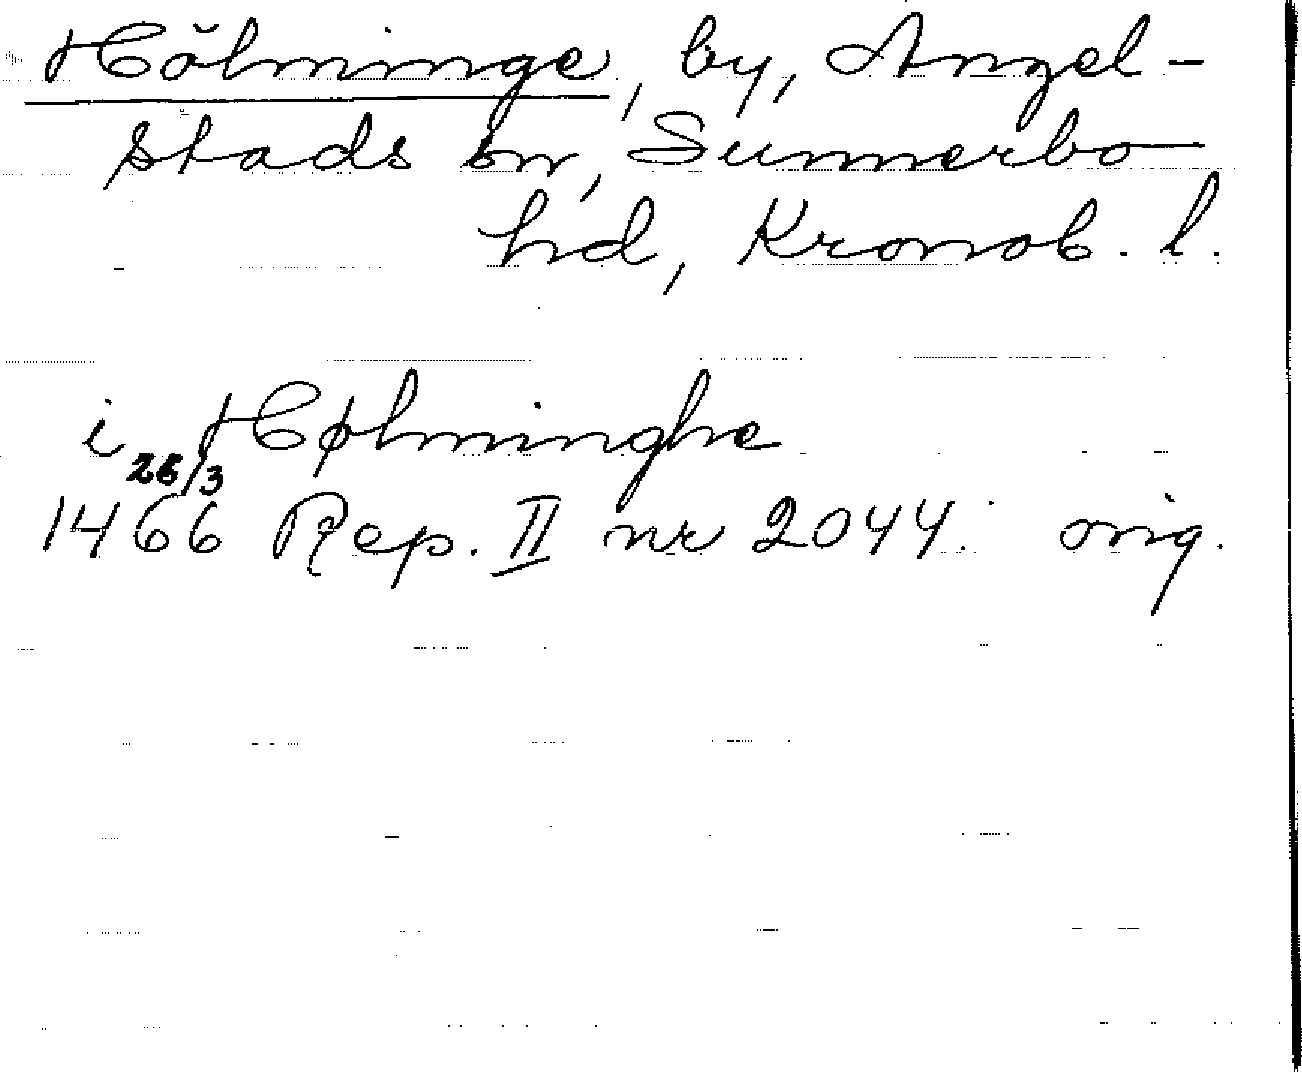 Hölminge, by, Angel-
stads sn, Sunnerbo
hd, Kronob. l.
i Hølminghe
26/3
1466 Rep. II nr 2044. orig.